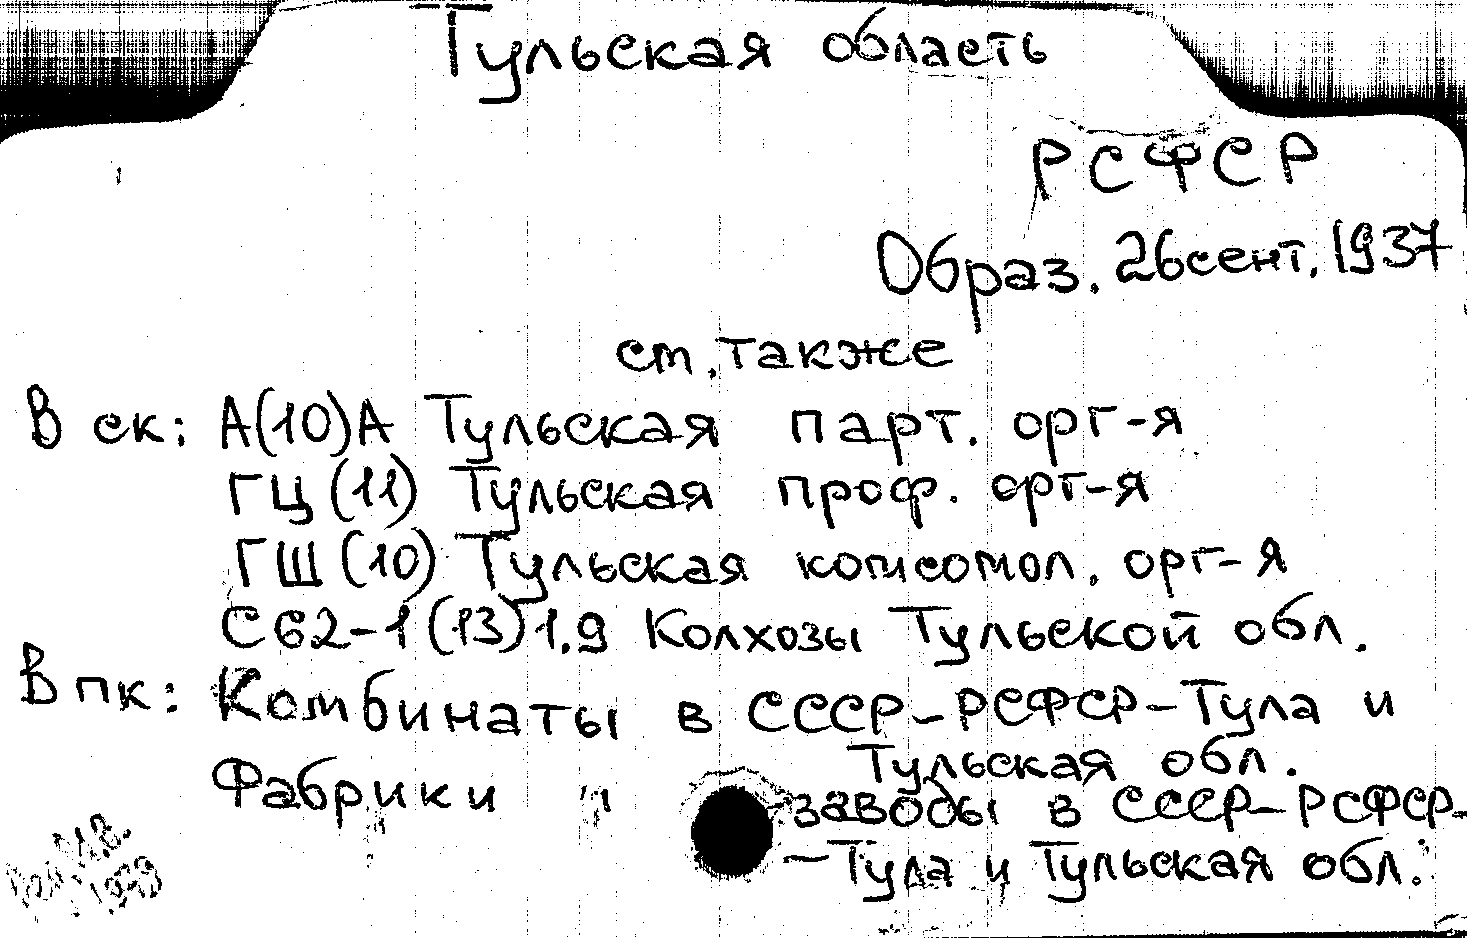 Тульская область
РСФСР
Образ. 26 сент. 1937
см. также
В ск: А(10)А Тульская парт. орг-я
ГЦ(11) Тульская проф. орг-я
ГШ(10) Тульская комсомол. орг-я
С62-1(13)1.9 Колхозы Тульской обл.
В пк: Комбинаты в СССР-РСФСР-Тула и
Тульская обл.
Фабрики " заводы в СССР-РСФСР-
-Тула и Тульская обл.
1979